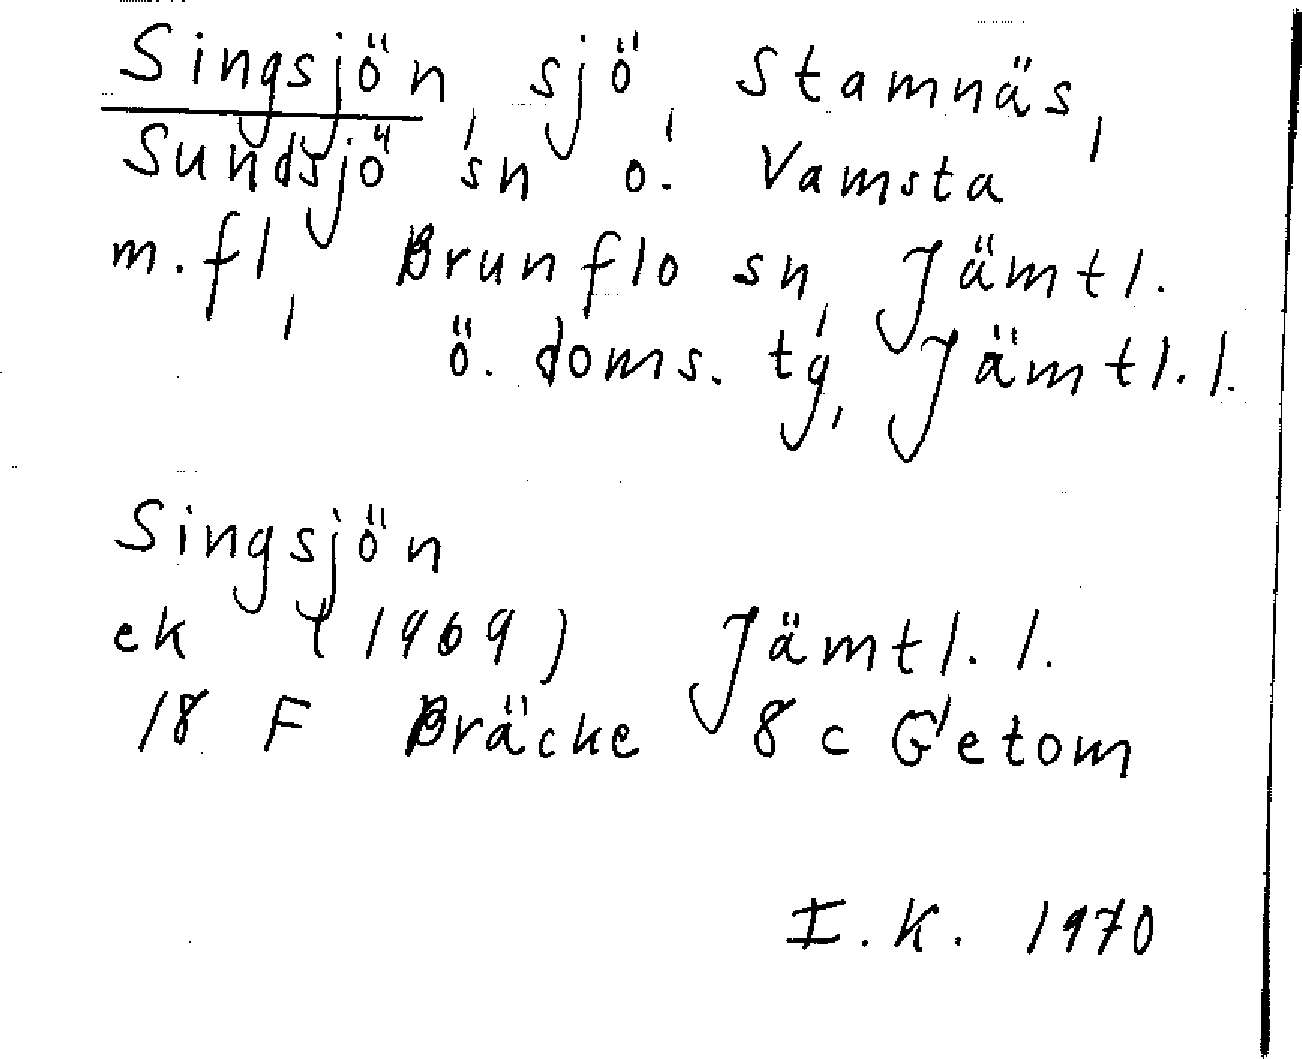 Singsjön, sjö, Stamnäs,
Sundsjö sn o. Vamsta
m.fl, Brunflo sn, Jämtl.
ö. doms. tg, Jämtl.l.
Singsjön
ek (1969) Jämtl.l.
18 F Bräcke 8 c Getom
I.K. 1970